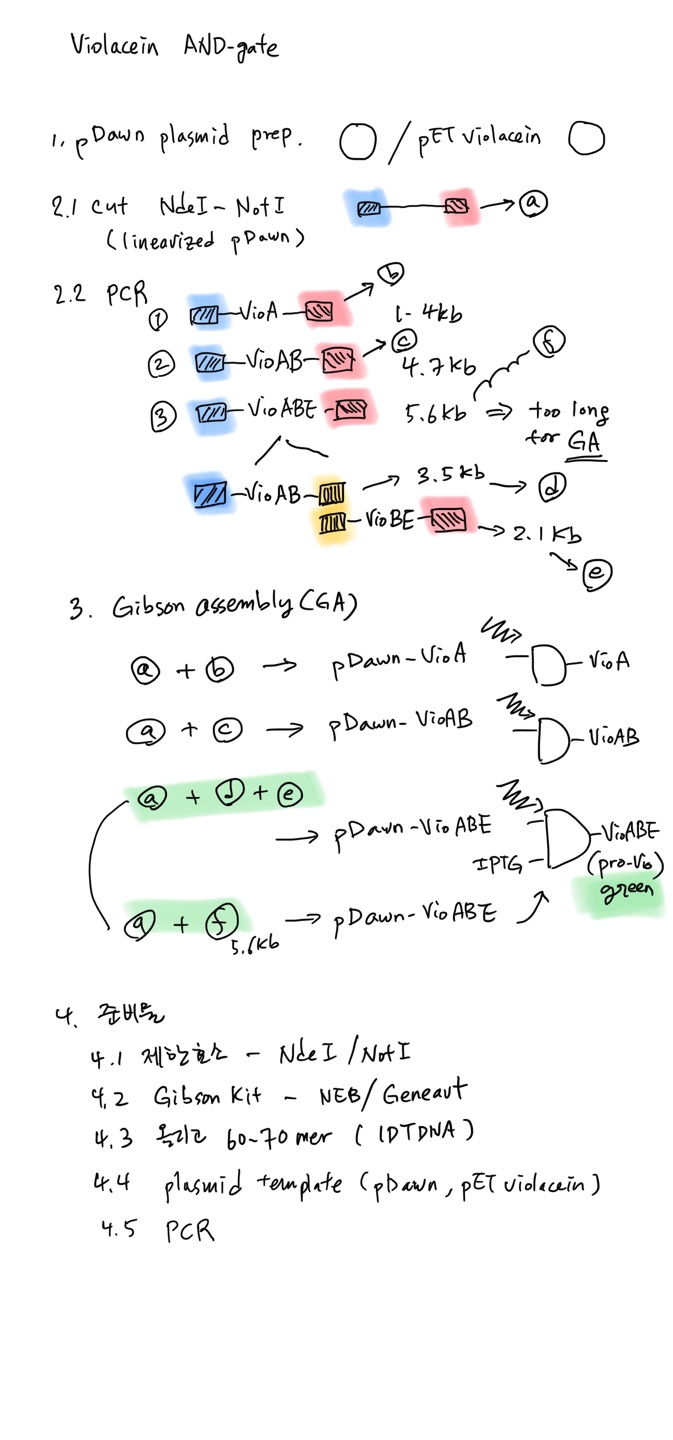 Violacein AND-gate
1. pDawn plasmid prep. / pET violacein
2.1 cut NdeI - NotI
(linearized pDawn)
ⓐ
2.2 PCR
① VioA ⓑ
1.4kb
② VioAB ⓒ
4.7kb
ⓕ
③ VioABE 5.6kb ⇒ too long
for GA
VioAB → 3.5kb → ⓓ
VioBE → 2.1kb
ⓔ
3. Gibson assembly (GA)
ⓐ + ⓑ → pDawn-VioA VioA
ⓐ + ⓒ → pDawn-VioAB VioAB
ⓐ + ⓓ + ⓔ
→ pDawn-VioABE VioABE
IPTG (pro-Vio)
green
ⓐ + ⓕ 5.6kb → pDawn-VioABE
4. 준비물
4.1 제한효소 - NdeI / NotI
4.2 Gibson Kit - NEB/Geneart
4.3 올리고 60-70 mer (IDTDNA)
4.4 plasmid template (pDawn, pET violacein)
4.5 PCR